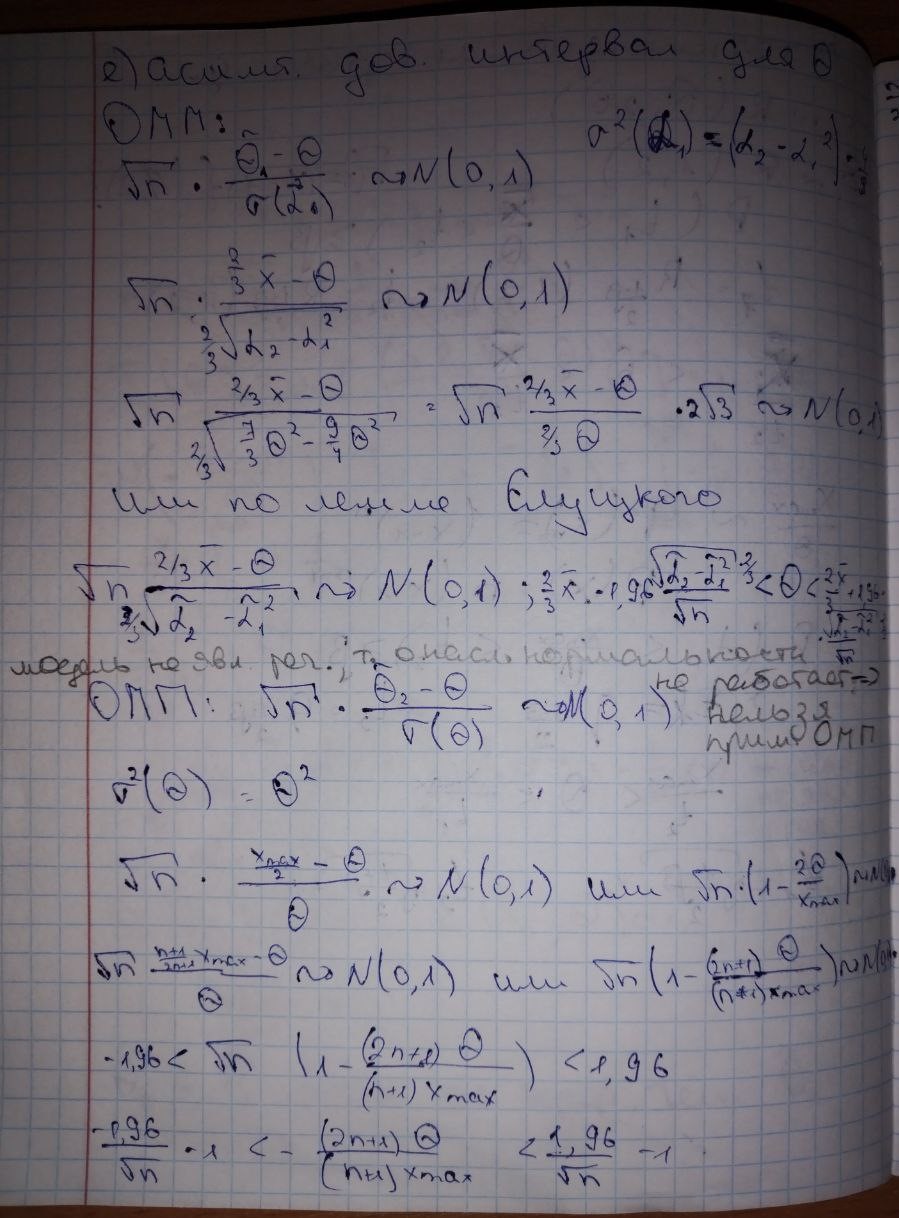 е) асимт. дов. интервал для Θ
ОММ:
σ²(α̃₁) = (α₂ - α₁²)
√n · (Θ̃₁ - Θ)/σ(α̃₁) ~> N(0,1)
√n · (2/3 x̄ - Θ)/(2/3 √(α₂ - α₁²)) ~> N(0,1)
√n (2/3 x̄ - Θ)/(2/3 √(7/3 Θ² - 9/4 Θ²)) = √n (2/3 x̄ - Θ)/(2/3 Θ) · 2√3 ~> N(0,1)
или по лемме Слуцкого
√n (2/3 x̄ - Θ)/(2/3 √(α̃₂ - α̃₁²)) ~> N(0,1) ; 2/3 x̄ - 1,96 √(α̃₂ - α̃₁²)/√n 2/3 < Θ < 2/3 x̄ + 1,96 · √(α̃₂ - α̃₁²)/√n
модель не явл. рег., т. о насл. нормальности
не работает =>
нельзя
прим. ОМП
ОМП: √n · (Θ̃₂ - Θ)/σ(Θ) ~> N(0,1)
σ²(Θ) = Θ²
√n · (xmax/2 - Θ)/Θ ~> N(0,1) или √n · (1 - 2Θ/xmax) ~> N(0,
√n ((n+1)/(2n+1) xmax - Θ)/Θ ~> N(0,1) или √n (1 - (2n+1)Θ/((n+1) xmax)) ~> N(0,
-1,96 < √n (1 - (2n+1)Θ/((n+1) xmax)) < 1,96
-1,96/√n - 1 < - (2n+1)Θ/((n+1) xmax) < 1,96/√n - 1